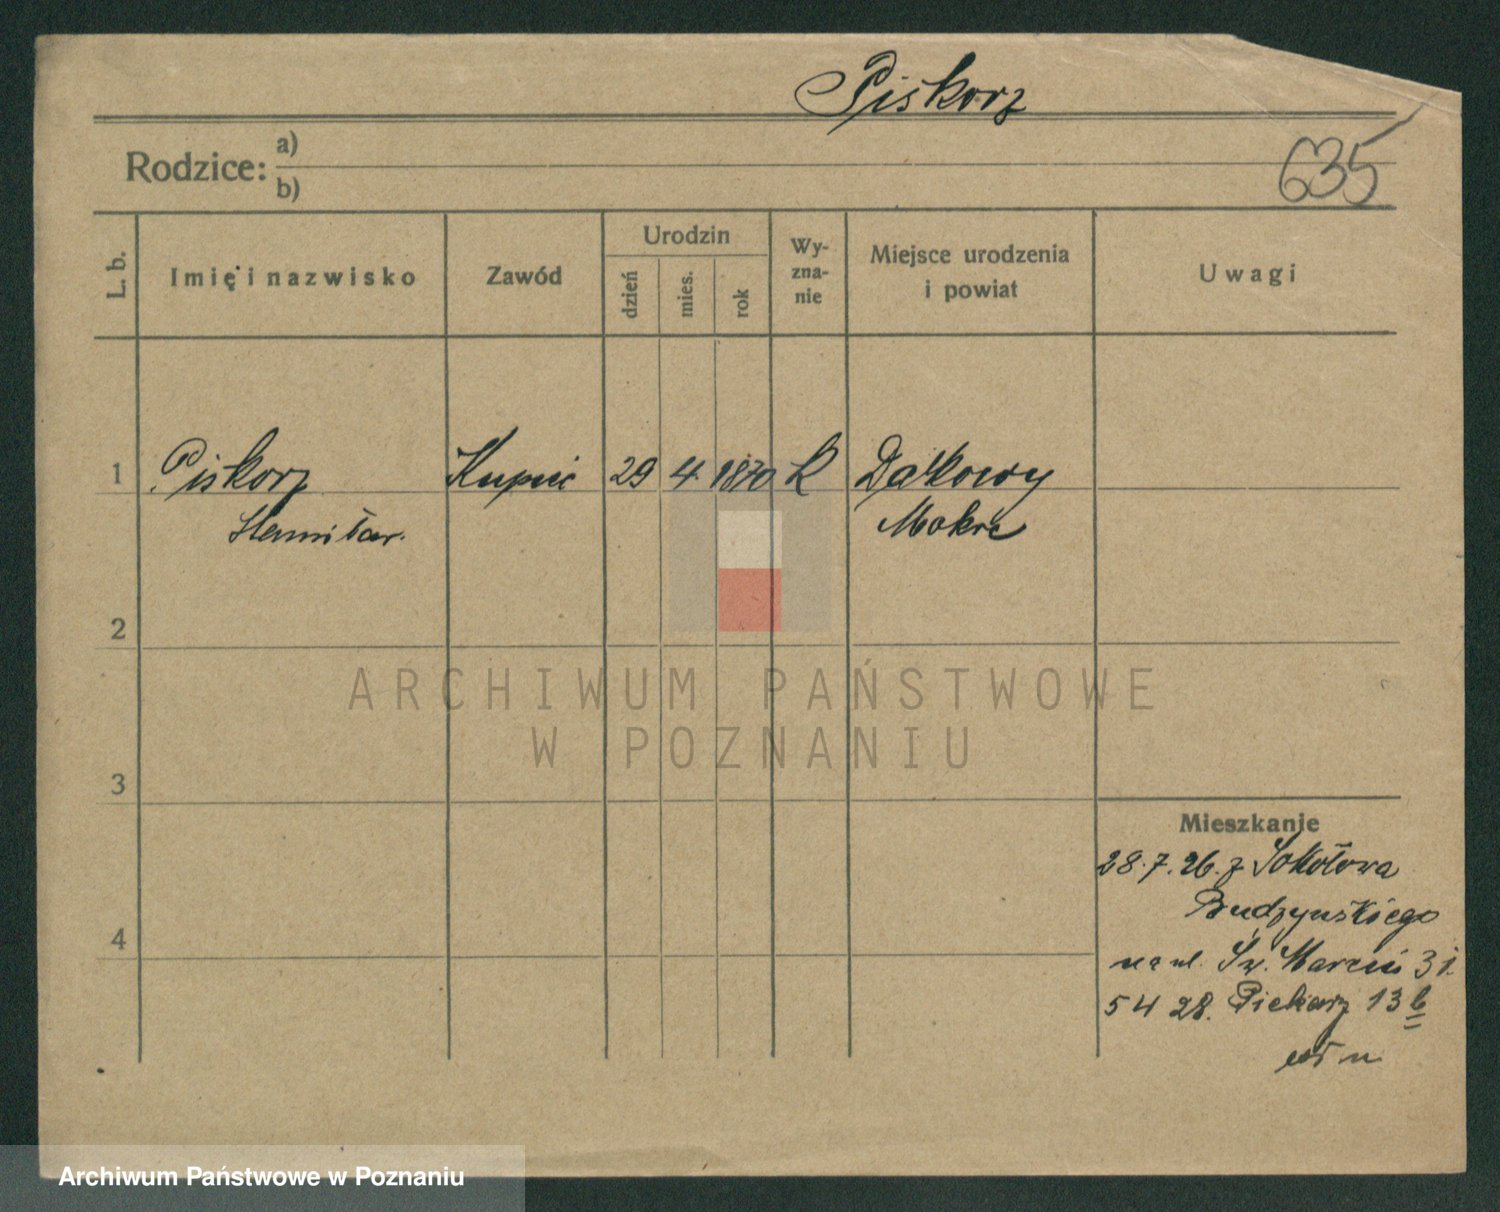 Piskorz
635
Rodzice: a)
b)
L. b.
Imię i nazwisko
Zawód
Urodzin
dzień
mies.
rok
Wy-
zna-
nie
Miejsce urodzenia
i powiat
Uwagi
1 Piskorz Kupiec 29 4. 1870 k Dąkowy
Stanisław. Mokre
2
ARCHIWUM PAŃSTWOWE
W POZNANIU
3
Mieszkanie
28.7.26. z Sokołowa
Budzyńskiego
4
na ul. Św. Marcin 31.
5 4 28. Piekary 13 b
m
Archiwum Państwowe w Poznaniu